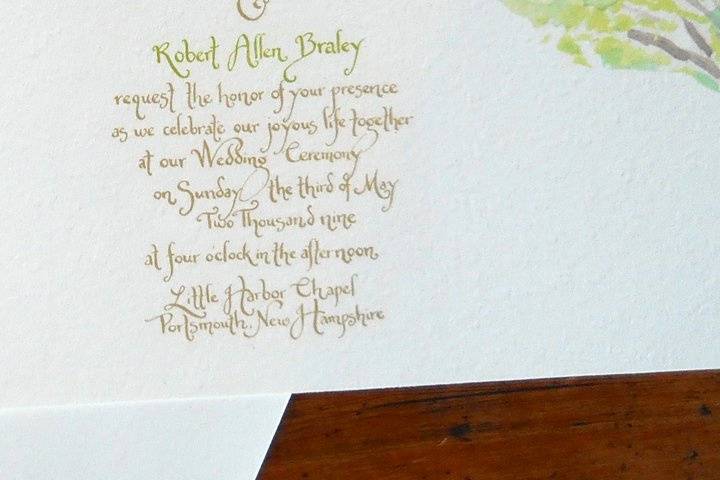 &
Robert Allen Braley
request the honor of your presence
as we celebrate our joyous life together
at our Wedding Ceremony
on Sunday, the third of May
Two Thousand nine
at four o'clock in the afternoon,
Little Harbor Chapel
Portsmouth, New Hampshire